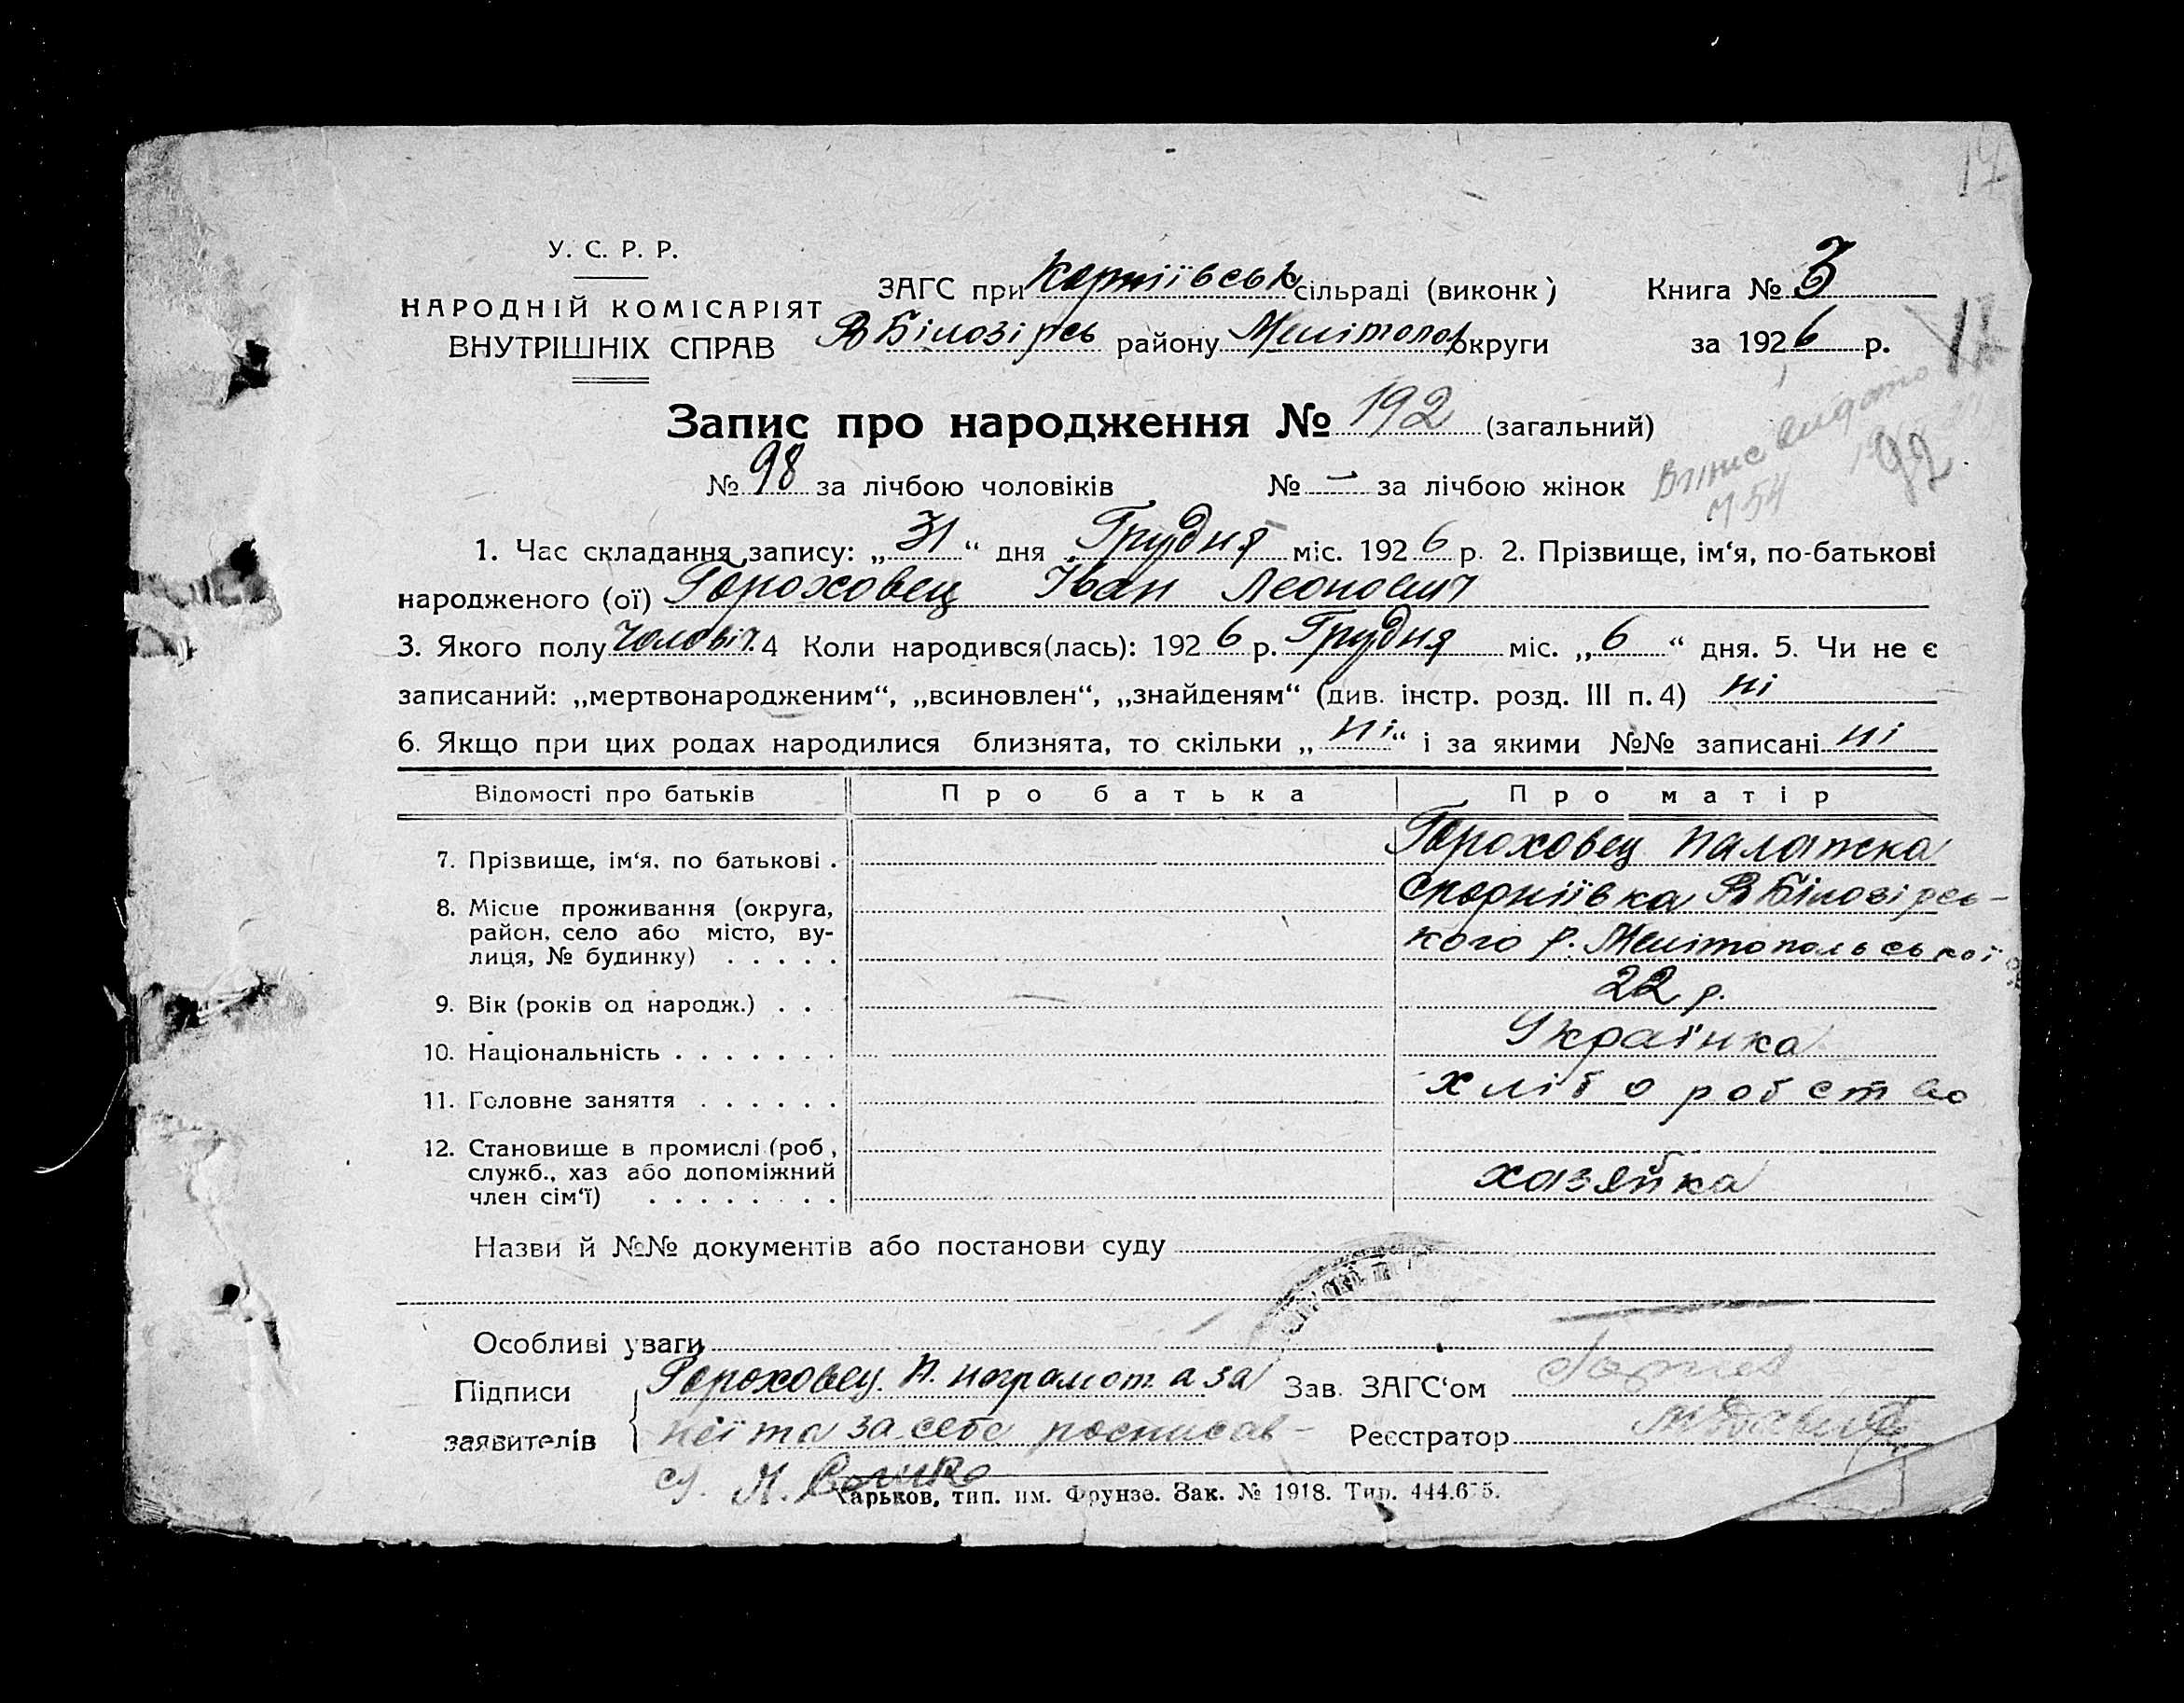 17
У. С. Р. Р.
НАРОДНІЙ КОМІСАРІЯТ
ВНУТРІШНІХ СПРАВ
ЗАГС при Корніївськ сільраді (виконк)
В Білозірсь району Мелітопол округи
Книга № 3
за 1926 р. 17
Запис про народження № 192 (загальний)
№ 98 за лічбою чоловіків № — за лічбою жінок
Витис видано
М 54
92
1. Час складання запису: „ 31 “ дня Грудня міс. 1926 р. 2. Прізвище, ім‘я, по-батькові
народженого (ої) Гороховец Іван Леонович
3. Якого полу чоловіч. 4 Коли народився(лась): 1926 р. Грудня міс. „ 6 “ дня. 5. Чи не є
записаний: „мертвонародженим“, „всиновлен“, „знайденям“ (див. інстр. розд. III п. 4) ні
6. Якщо при цих родах народилися близнята, то скільки „ ні “ і за якими №№ записані ні
Відомості про батьків Про батька Про матір
7. Прізвище, ім‘я, по батькові . Гороховец Палажка
8. Місце проживання (округа,
район, село або місто, ву-
лиця, № будинку) . . . . .
с Корніївка В Білозірсь-
кого р. Мелітопольської
9. Вік (років од народж.) . . . 22 р.
10. Національність . . . . . . . Українка
11. Головне заняття . . . . . . хліборобство
12. Становище в промислі (роб,
служб., хаз або допоміжний
член сім‘ї) . . . . . . . . хазяйка
Назви й №№ документів або постанови суду
Особливі уваги
Підписи
заявителів
Гороховец. П. неграмот. а за
неї та за себе росписав-
ся.
Зав. ЗАГС‘ом
Реєстратор
Харьков, тип. им. Фрунзе. Зак. № 1918. Тир. 444.675.